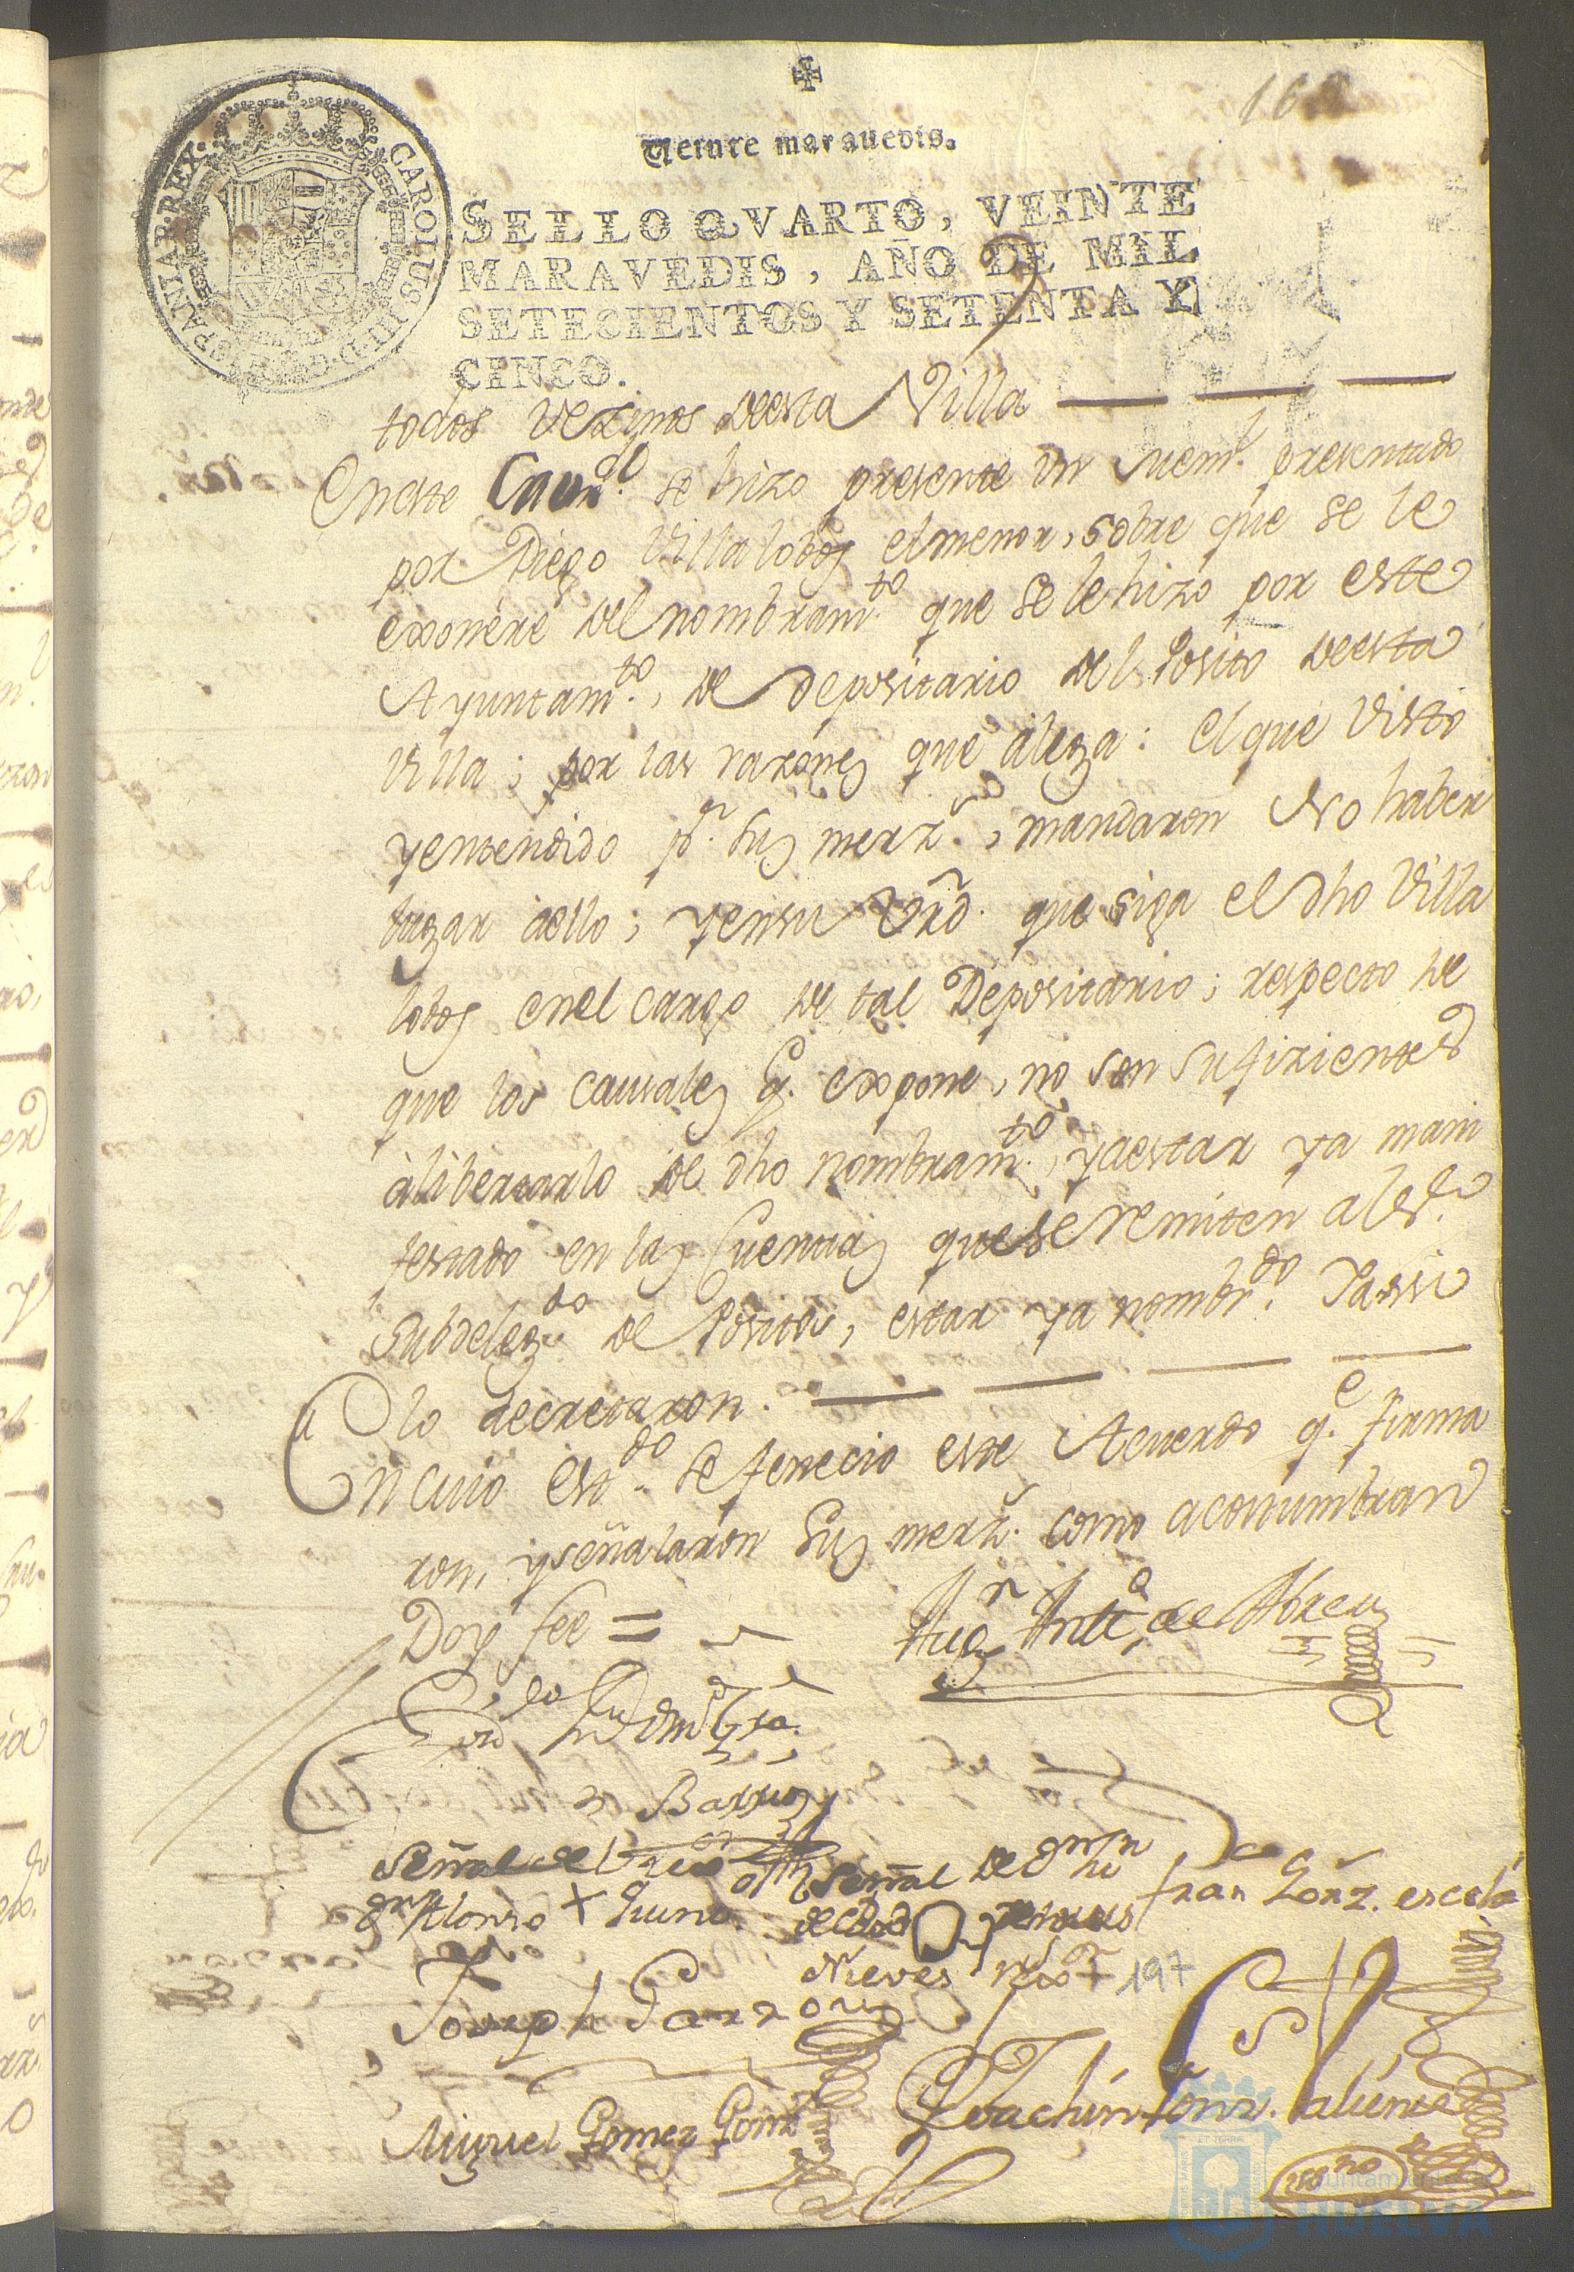 168
Veinte maravedis.
CAROLUS III D. G. HISPANIAR. REX.
SELLO QVARTO, VEINTE
MARAVEDIS, AÑO DE MIL
SETECIENTOS Y SETENTA Y
CINCO.
todos vezinos de esta Villa
En este Cavdo. se hizo presente un mem.l presentado
por Diego Villalobos el menor, sobre que se le
exonere del nombram.to que se le hizo por este
Ayuntam.to, de depositario del Posito de esta
Villa; por las razones que alega: El que visto
y entendido p.r sus merz.s, mandaron No haber
lugar aello; y en su Vird. que siga el dho Villa
lobos en el cargo de tal Depositario; respecto de
que los causales q. expone, no son sufizientes
à libertarlo de dho nombram.to, y aestar ya mani
festado en las Cuentas que se remiten al Sr.
Subdeleg.do de Positos, estar ya nombr.do Y assi
lo decretaron.
En cuio est.do se fenecio este Acuerdo q.e firma
ron, y señalaron sus merz.s como acostumbran
Doy fee =
Aug.n Ant.o de Abreu
Barrios
Señal de
Alonso + Quint.o
Señal de
Nieves rex.or
197
Fran Gonz. escala
Joseph Garzon
Miguel Gomez Gonz
Joachin Gonz. Valiente
essno
Ayuntamiento de
HUELVA